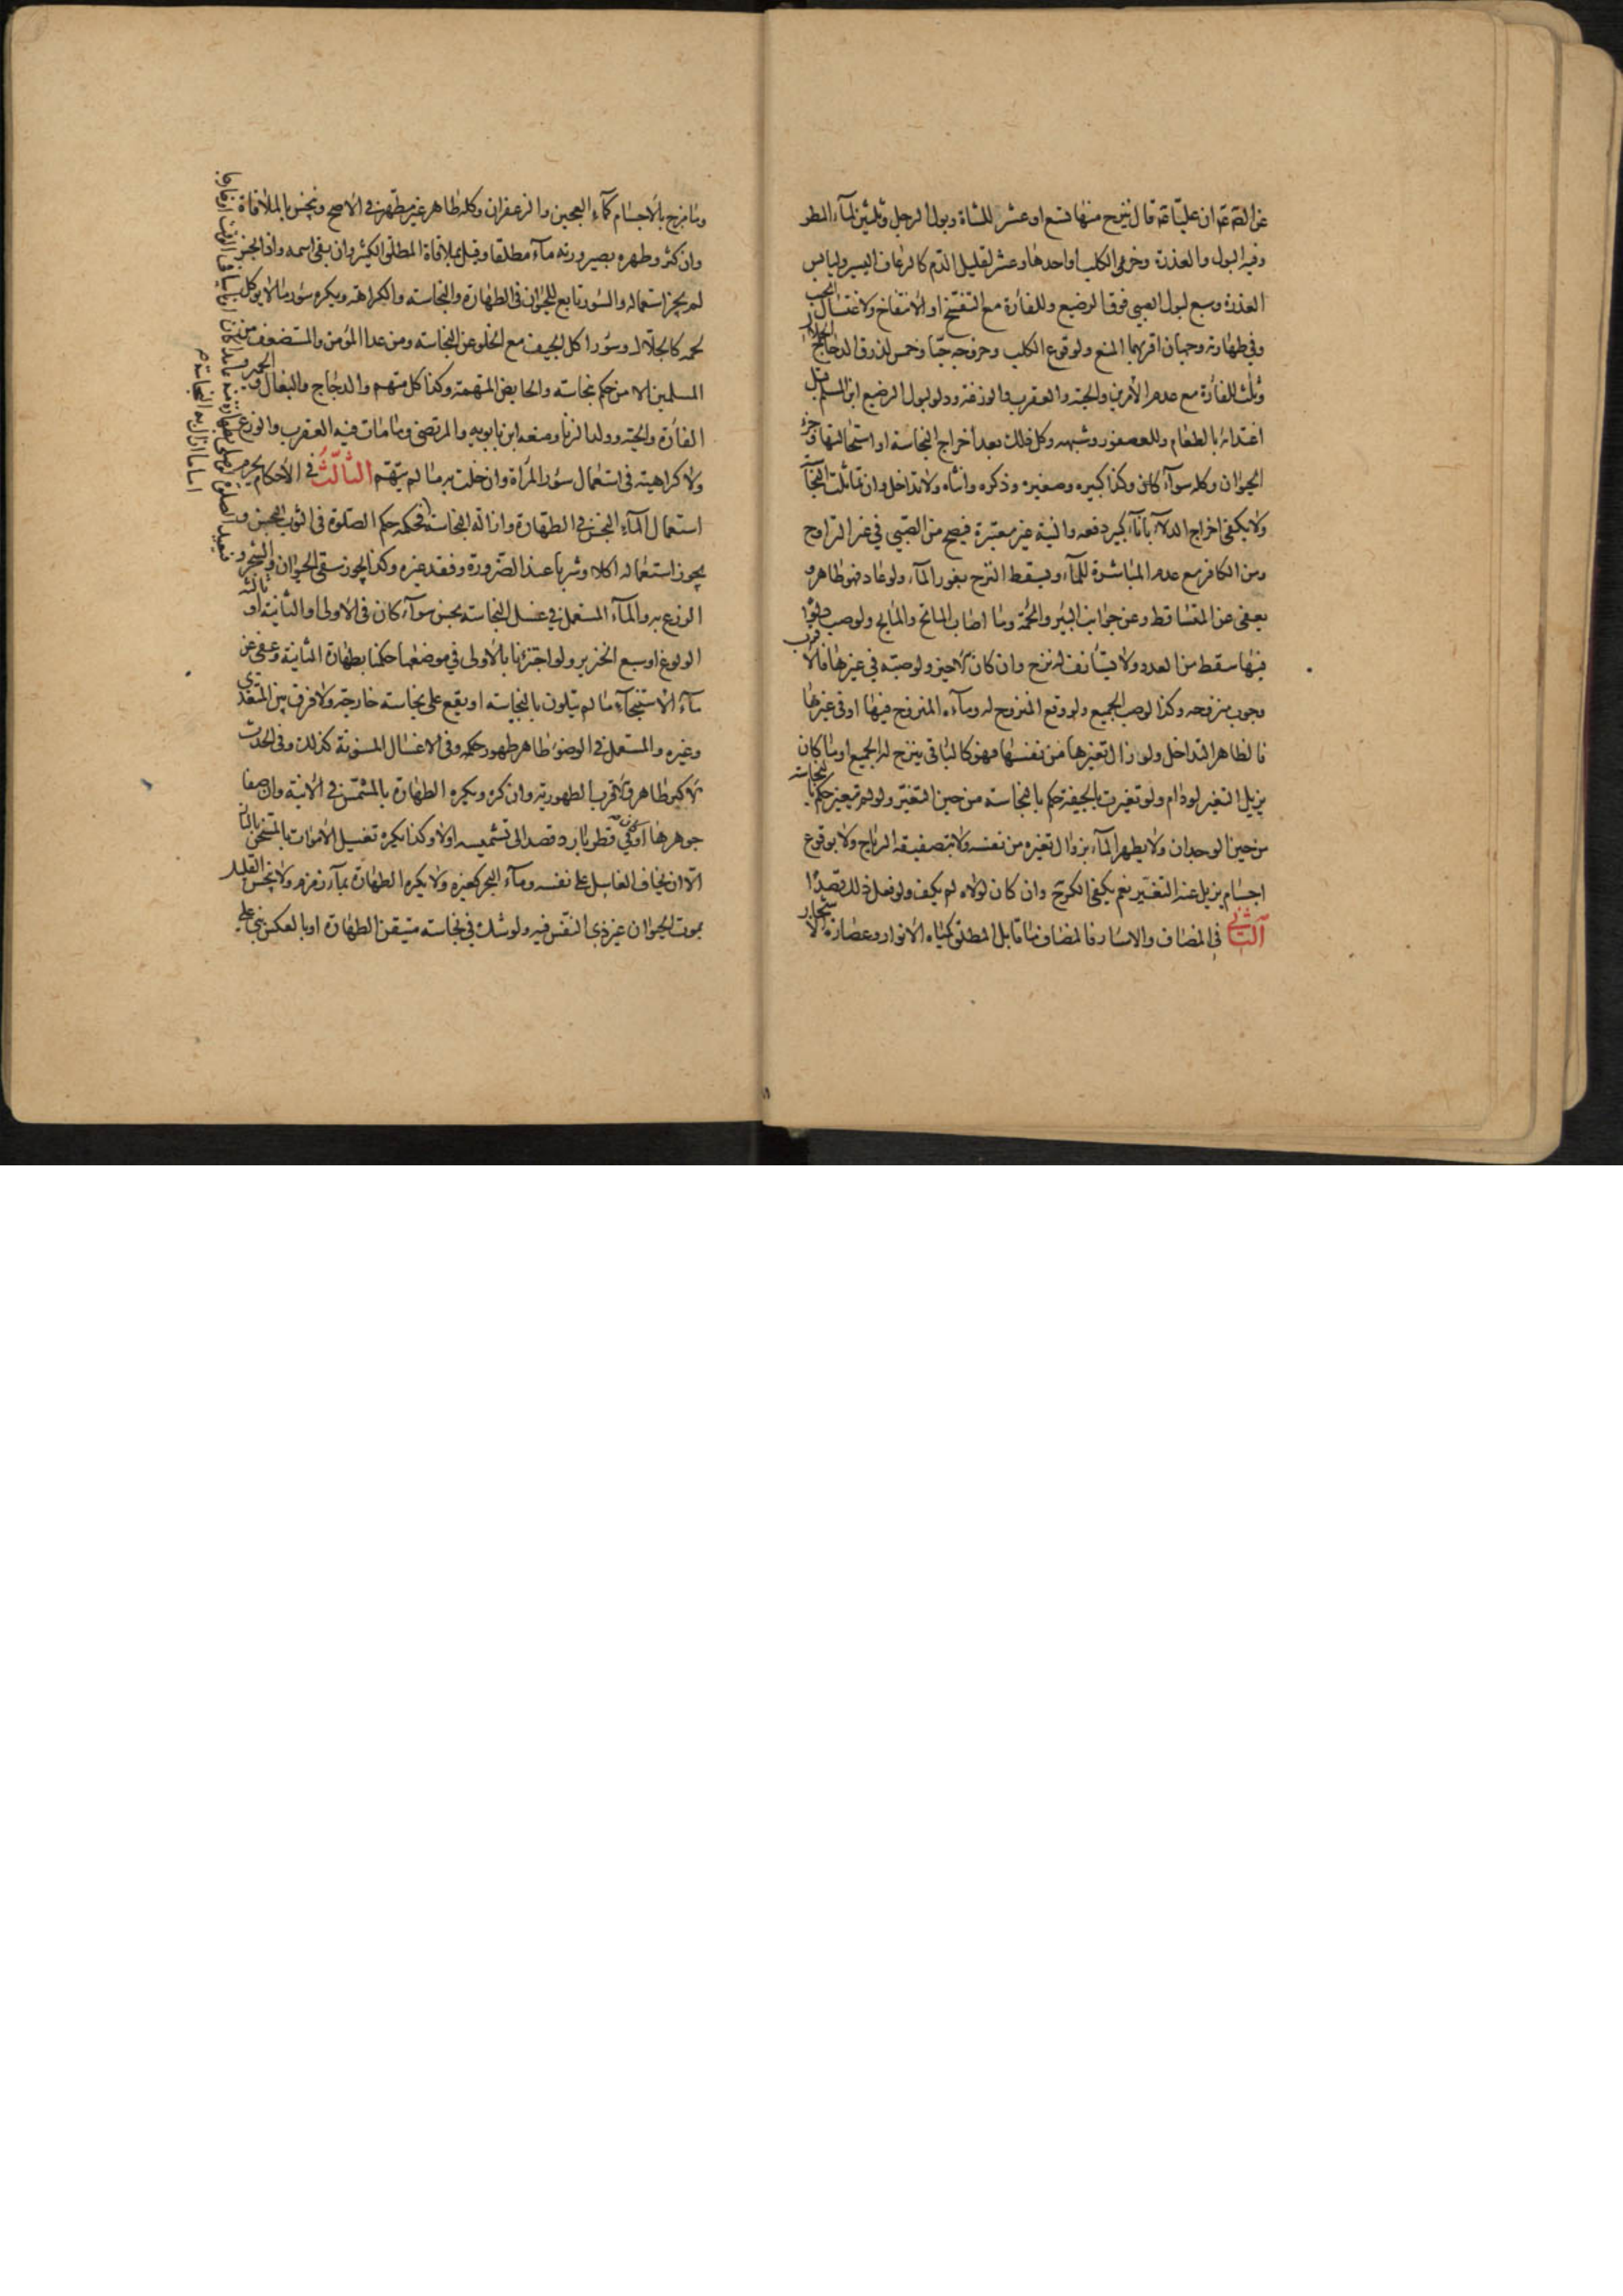 عن الصادق ان عليا قال ينزح منها تسع او عشر للشاة وبول الرجل وثلثين لماء المطر
وفيه البول والعذرة وخرء الكلب او احدها وعشر لقليل الدم كالرعاف اليسير وليابس
العذرة وسبع لبول الصبي فوق الرضيع وللفأرة مع التفسخ او الانتفاخ ولاغتسال الجنب
وفي طهارته وجهان اقربهما المنع ولوقوع الكلب وخروجه حيا وخمس لذرق الدجاج الجلال
وثلث للفأرة مع عدم الأمرين والحية والعقرب والوزغة ودلو لبول الرضيع ابن المسلم قبل
اغتذائه بالطعام وللعصفور وشبهه وكل ذلك بعد اخراج النجاسة او استحالتها وجزء
الحيوان وكله سواء وكذا كبيره وصغيره وذكره وانثاه ولا تداخل وان تماثلت
ولا يكفي اخراج الدلاء بآناء كبير دفعه والنية غير معتبرة فيصح من الصبي في غير التراوح
ومن الكافر مع عدم المباشرة للماء ويسقط النزح بغور الماء ولو عاد فهو طاهر و
يعفى عن المتساقط وعن جوانب البئر والحمأة وما اصاب الماتح والمايح ولو صب دلو
فيها سقط من العدد ولا يستأنف له نزح وان كان الاخير ولو صبه في غيرها فالاقرب
وجوب منزوحه وكذا لو صب الجميع ولو وقع المنزوح له وماءه المنزوح فيها او في غيرها
فالظاهر التداخل ولو زال تغيرها من نفسها فهو كالباقي ينزح له الجميع او ما كان
يزيل التغير لو دام ولو تغيرت بالجيفة حكم بالنجاسة من حين التغير ولو لم تتغير حكم بالنجاسة
من حين الوجدان ولا يطهر الماء بزوال تغيره من نفسه ولا بتصفيقه الرياح ولا بوقوع
اجسام يزيل عنه التغير نعم يكفي الكر وان كان لولاه لم يكف ولو فعل ذلك قصدا
الثاني في المضاف والاسآر فالمضاف ما قابل المطلق كمياه الانوار وعصارة الاشجار
وما مزج بالاجسام كماء العجين والزعفران وكله طاهر غير مطهر في الاصح وينجس بالملاقاة
وان كثر وطهره بصيرورته ماء مطلقا وقيل بملاقاة المطلق الكثير وان بقي اسمه واذا نجس
لم يجز استعماله والسؤر تابع للحيوان في الطهارة والنجاسة والكراهة ويكره سؤر ما لا يؤكل
لحمه كالجلال وسؤر اكل الجيف مع الخلو عن النجاسة ومن عدا المؤمن والمستضعف من
المسلمين الا من حكم بنجاسته والحايض المتهمة وكذا كل متهم والدجاج والبغال والحمير و
الفأرة والحية وولد الزنا ومنعه ابن بابويه والمرتضى وما مات فيه العقرب والوزغ
ولا كراهية في استعمال سؤر المرأة وان خلت به ما لم يتهم الثالث في الاحكام يحرم
استعمال الماء النجس في الطهارة وازالة النجاسة فحكمه حكم الصلوة في الثوب النجس و
يجوز استعماله اكلا وشربا عند الضرورة وفقد غيره وكذا يجوز سقي الحيوان والشجر و
الزرع به والماء المستعمل في غسل النجاسة نجس سواء كان في الاولى او الثانية او ثالثة
الولوغ او سبع الخنزير ولو اجتزئنا بالاولى في موضعهما حكمنا بطهارة الثانية وعفي عن
ماء الاستنجاء ما لم يتلون بالنجاسة او يقع على نجاسة خارجة ولا فرق بين المتعدي
وغيره والمستعمل في الوضوء طاهر طهور حكمه وفي الاغسال المسنونة كذلك وفي الحدث
الاكبر طاهر والاقرب الطهورية وان كره ويكره الطهارة بالمشمس في الانية وان صفا
جوهرها او كان في قطر بارد قصد الى تشميسه اولا وكذا يكره تغسيل الاموات بالمتسخن بالنار
الا ان يخاف الغاسل على نفسه وماء البحر كغيره ولا يكره الطهارة بماء زمزم ولا ينجس القليل
بموت الحيوان غير ذي النفس فيه ولو شك في نجاسة متيقن الطهارة او بالعكس بنى على